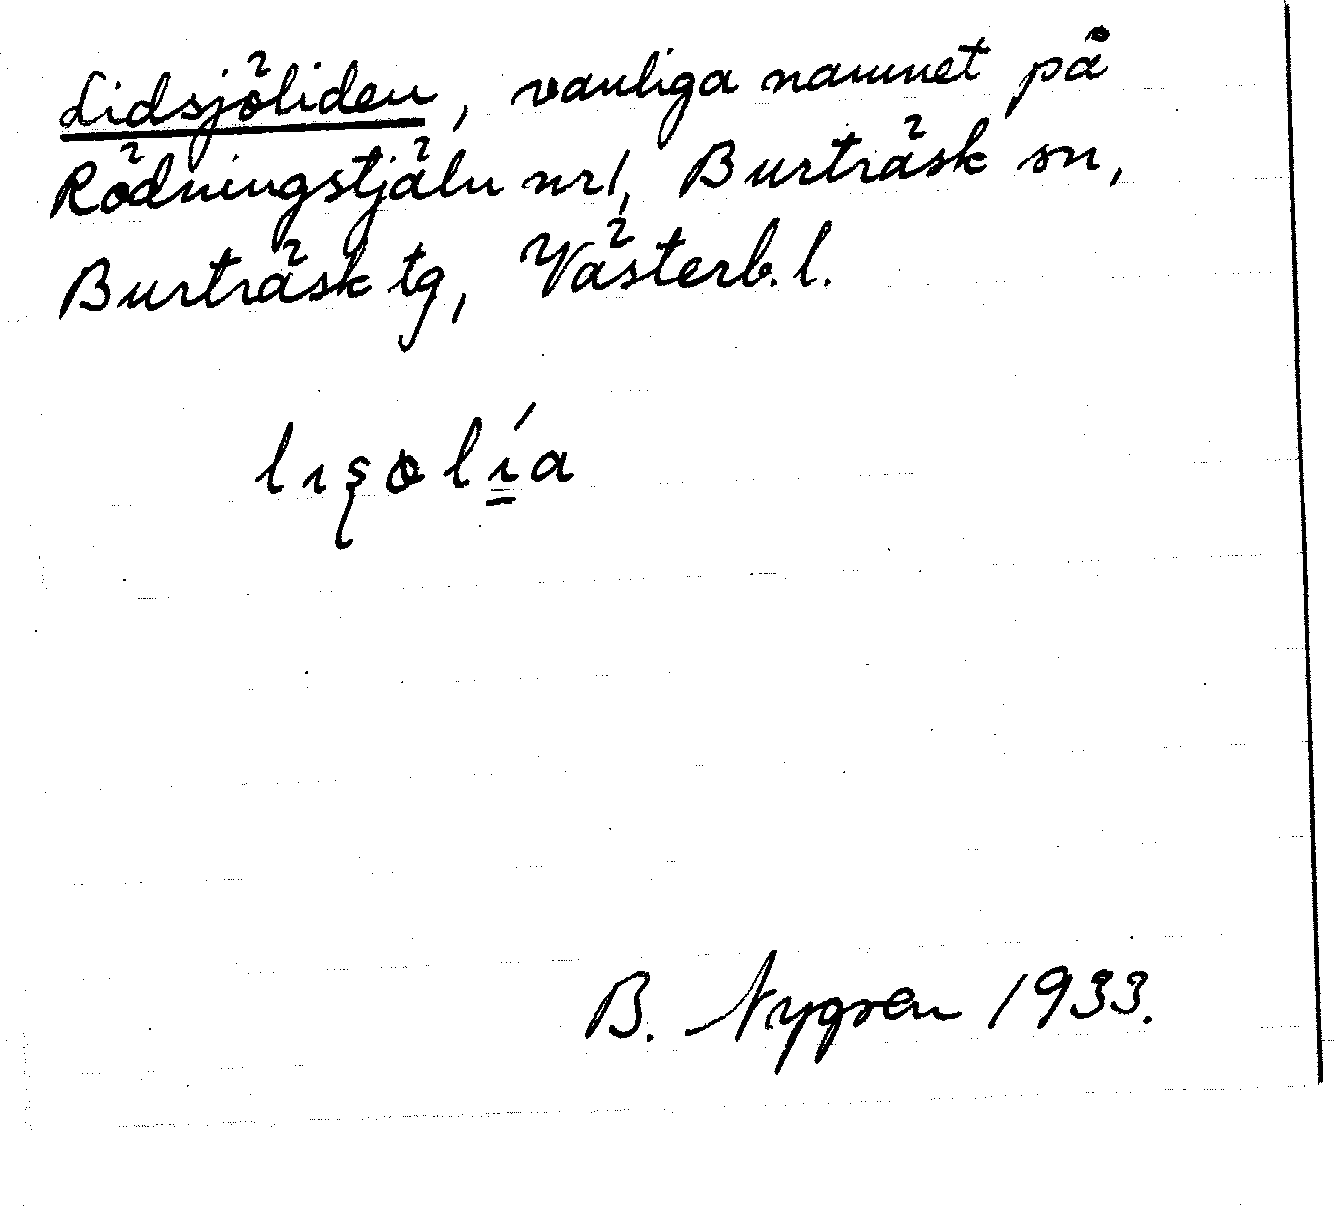 Lidsjöliden, vanliga namnet på
Rödningstjäln nr 1, Burträsk sn,
Burträsk tg, Västerb. l.
B. Nygren 1933.